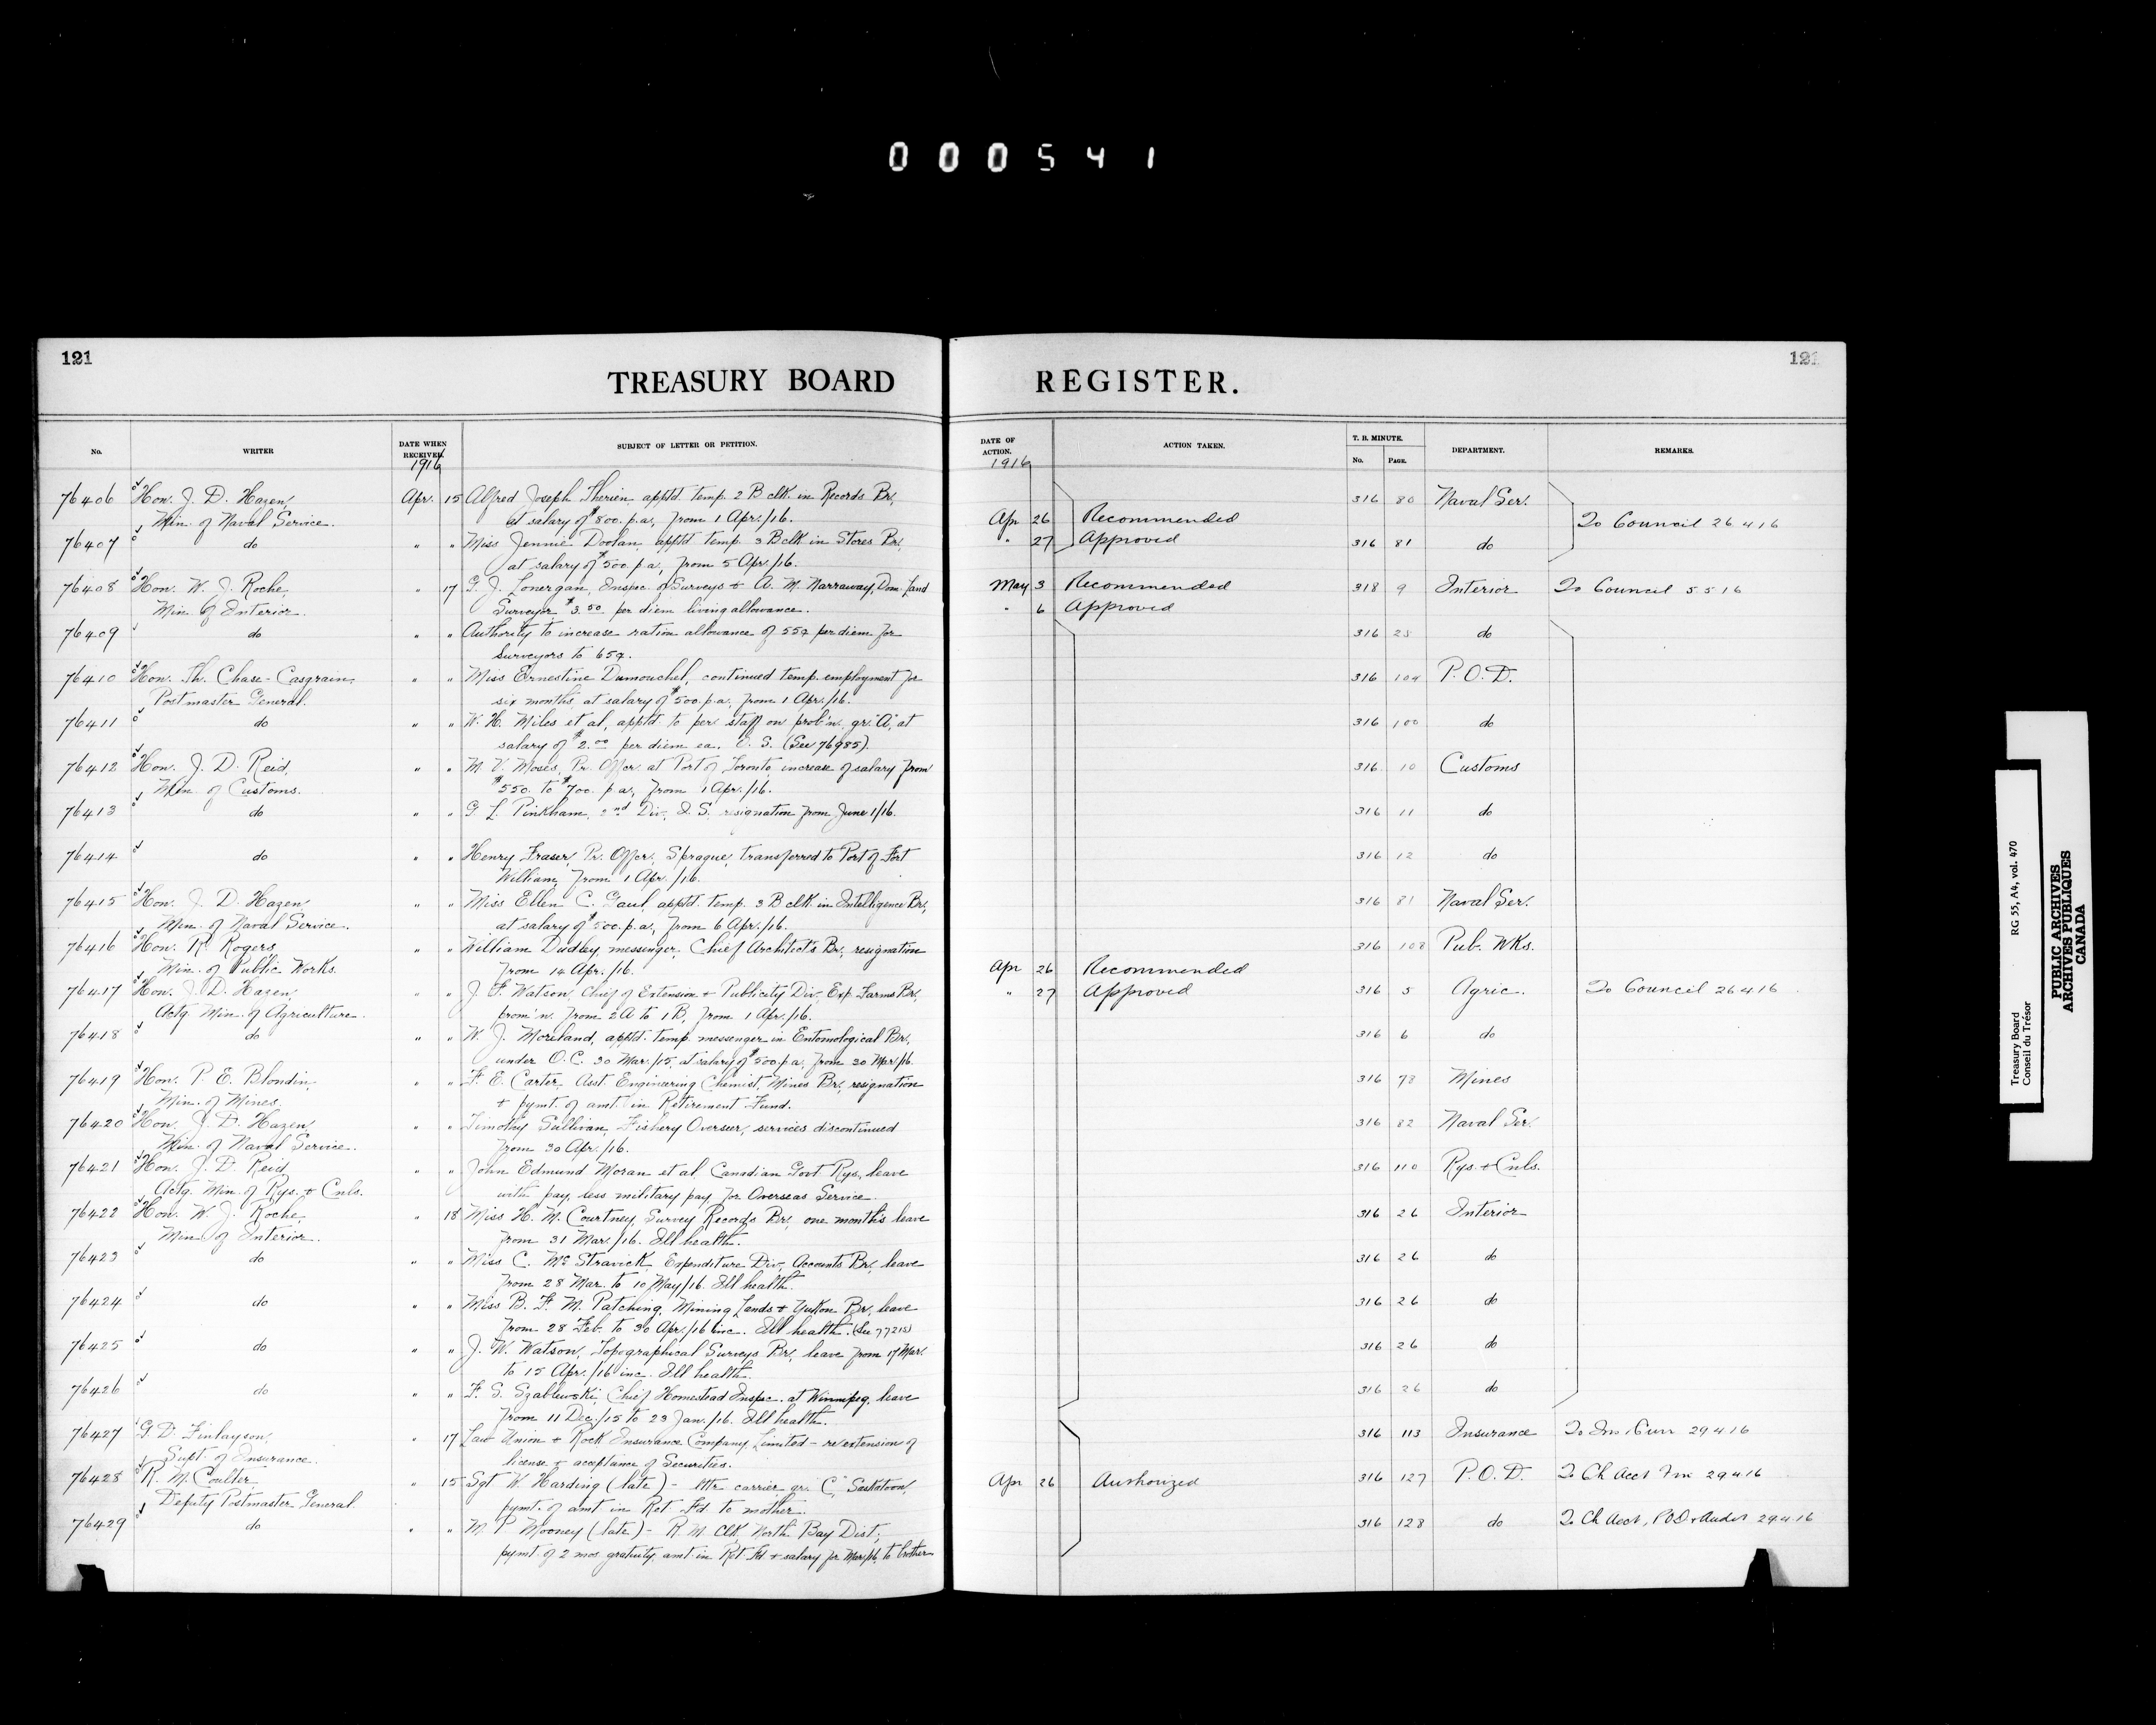 000541
121
TREASURY BOARD REGISTER.
121
No. WRITER DATE WHEN RECEIVED. SUBJECT OF LETTER OR PETITION. DATE OF ACTION. ACTION TAKEN. T. B. MINUTE. DEPARTMENT. REMARKS.
No. PAGE.
1916 1916
76406 Hon. J. D. Hazen, Apr. 15 Alfred Joseph Therien, apptd. temp. 2 B clk. in Records Br., 316 80 Naval Ser.
Min. of Naval Service. at salary of $800. p.a., from 1 Apr./16. Apr 26 Recommended To Council 26 4 16
76407 do " " Miss Jennie Doolan, apptd. temp. 3 B clk in Stores Br., " 27 Approved 316 81 do
at salary of $500. p.a., from 5 Apr./16.
76408 Hon. W. J. Roche, " 17 G. J. Lonergan, Inspc. of Surveys & A. M. Narraway, Dom. Land May 3 Recommended 318 9 Interior To Council 5 5 16
Min. of Interior. Surveyor $3.50 per diem living allowance. " 6 Approved
76409 do " " Authority to increase ration allowance of 55¢ per diem for 316 25 do
Surveyors to 65¢.
76410 Hon. Th. Chase-Casgrain, " " Miss Ernestine Dumouchel, continued temp. employment for 316 104 P.O.D.
Postmaster General. six months at salary of $500. p.a., from 1 Apr./16.
76411 do " " W. H. Miles et al, apptd. to per. staff on prob'n., gr. "A", at 316 100 do
salary of $2.00 per diem ea. O. S. (See 76985).
76412 Hon. J. D. Reid, " " M. V. Moses, Pr. Offcr. at Port of Toronto, increase of salary from 316 10 Customs
Min. of Customs. $550. to $700. p.a., from 1 Apr./16.
76413 do " " G. L. Pinkham, 2nd Div., I. S. resignation from June 1/16. 316 11 do
76414 do " " Henry Fraser, Pr. Offcr., Sprague, transferred to Port of Fort 316 12 do
William, from 1 Apr./16.
76415 Hon. J. D. Hazen, " " Miss Ellen C. Gaul, apptd. temp. 3 B clk. in Intelligence Br., 316 81 Naval Ser.
Min. of Naval Service. at salary of $500. p.a., from 6 Apr./16.
76416 Hon. R. Rogers, " " William Dudley, messenger, Chief Architect's Br., resignation 316 108 Pub. Wks.
Min. of Public Works. from 14 Apr./16. Apr 26 Recommended
76417 Hon. J. D. Hazen, " " J. F. Watson, Chief of Extension & Publicity Div., Exp. Farms Br., " 27 Approved 316 5 Agric. To Council 26 4 16
Actg. Min. of Agriculture. prom'n. from 2A to 1B, from 1 Apr./16.
76418 do " " W. J. Moreland, apptd. temp. messenger in Entomological Br., 316 6 do
under O.C. 30 Mar./15, at salary of $500. p.a., from 30 Mar/16.
76419 Hon. P. E. Blondin, " " F. E. Carter, Asst. Engineering Chemist, Mines Br., resignation 316 78 Mines
Min. of Mines. & pymt. of amt. in Retirement Fund.
76420 Hon. J. D. Hazen, " " Timothy Sullivan, Fishery Overseer, services discontinued 316 82 Naval Ser.
Min. of Naval Service. from 30 Apr./16.
76421 Hon. J. D. Reid, " " John Edmund Moran et al, Canadian Govt Rys., leave 316 110 Rys. & Cnls.
Actg. Min. of Rys. & Cnls. with pay, less military pay, for Overseas Service.
76422 Hon. W. J. Roche, " 18 Miss H. M. Courtney, Survey Records Br., one month's leave 316 26 Interior
Min. of Interior. from 31 Mar./16. Ill health.
76423 do " " Miss C. McStravick, Expenditure Div., Accounts Br., leave 316 26 do
from 28 Mar. to 10 May/16. Ill health.
76424 do " " Miss B. F. M. Patching, Mining Lands & Yukon Br., leave 316 26 do
from 28 Feb. to 30 Apr./16 inc. Ill health. (See 77215)
76425 do " " J. W. Watson, Topographical Surveys Br., leave from 17 Mar. 316 26 do
to 15 Apr./16 inc. Ill health.
76426 do " " F. S. Szablewski, Chief Homestead Inspc. at Winnipeg, leave 316 26 do
from 11 Dec./15 to 23 Jan./16. Ill health.
76427 G. D. Finlayson, " 17 Law Union & Rock Insurance Company Limited - re extension of 316 113 Insurance 29 4 16
Supt. of Insurance. license & acceptance of Securities.
76428 R. M. Coulter, " 15 Sgt W. Harding (late) - lttr. carrier, gr. "C", Saskatoon, Apr 26 Authorized 316 127 P.O.D. To Ch Acct 29 4 16
Deputy Postmaster General. pymt. of amt in Ret. Fd. to mother.
76429 do " " M. P. Mooney (late) - R. M. Clk, North Bay Dist., 316 128 do To Ch Acct, POD & Audit 29 4 16
pymt. of 2 mos. gratuity, amt. in Ret. Fd. & salary for Mar/16, to brother
Treasury Board RG 55, A4, vol. 470
Conseil du Trésor
PUBLIC ARCHIVES
ARCHIVES PUBLIQUES
CANADA